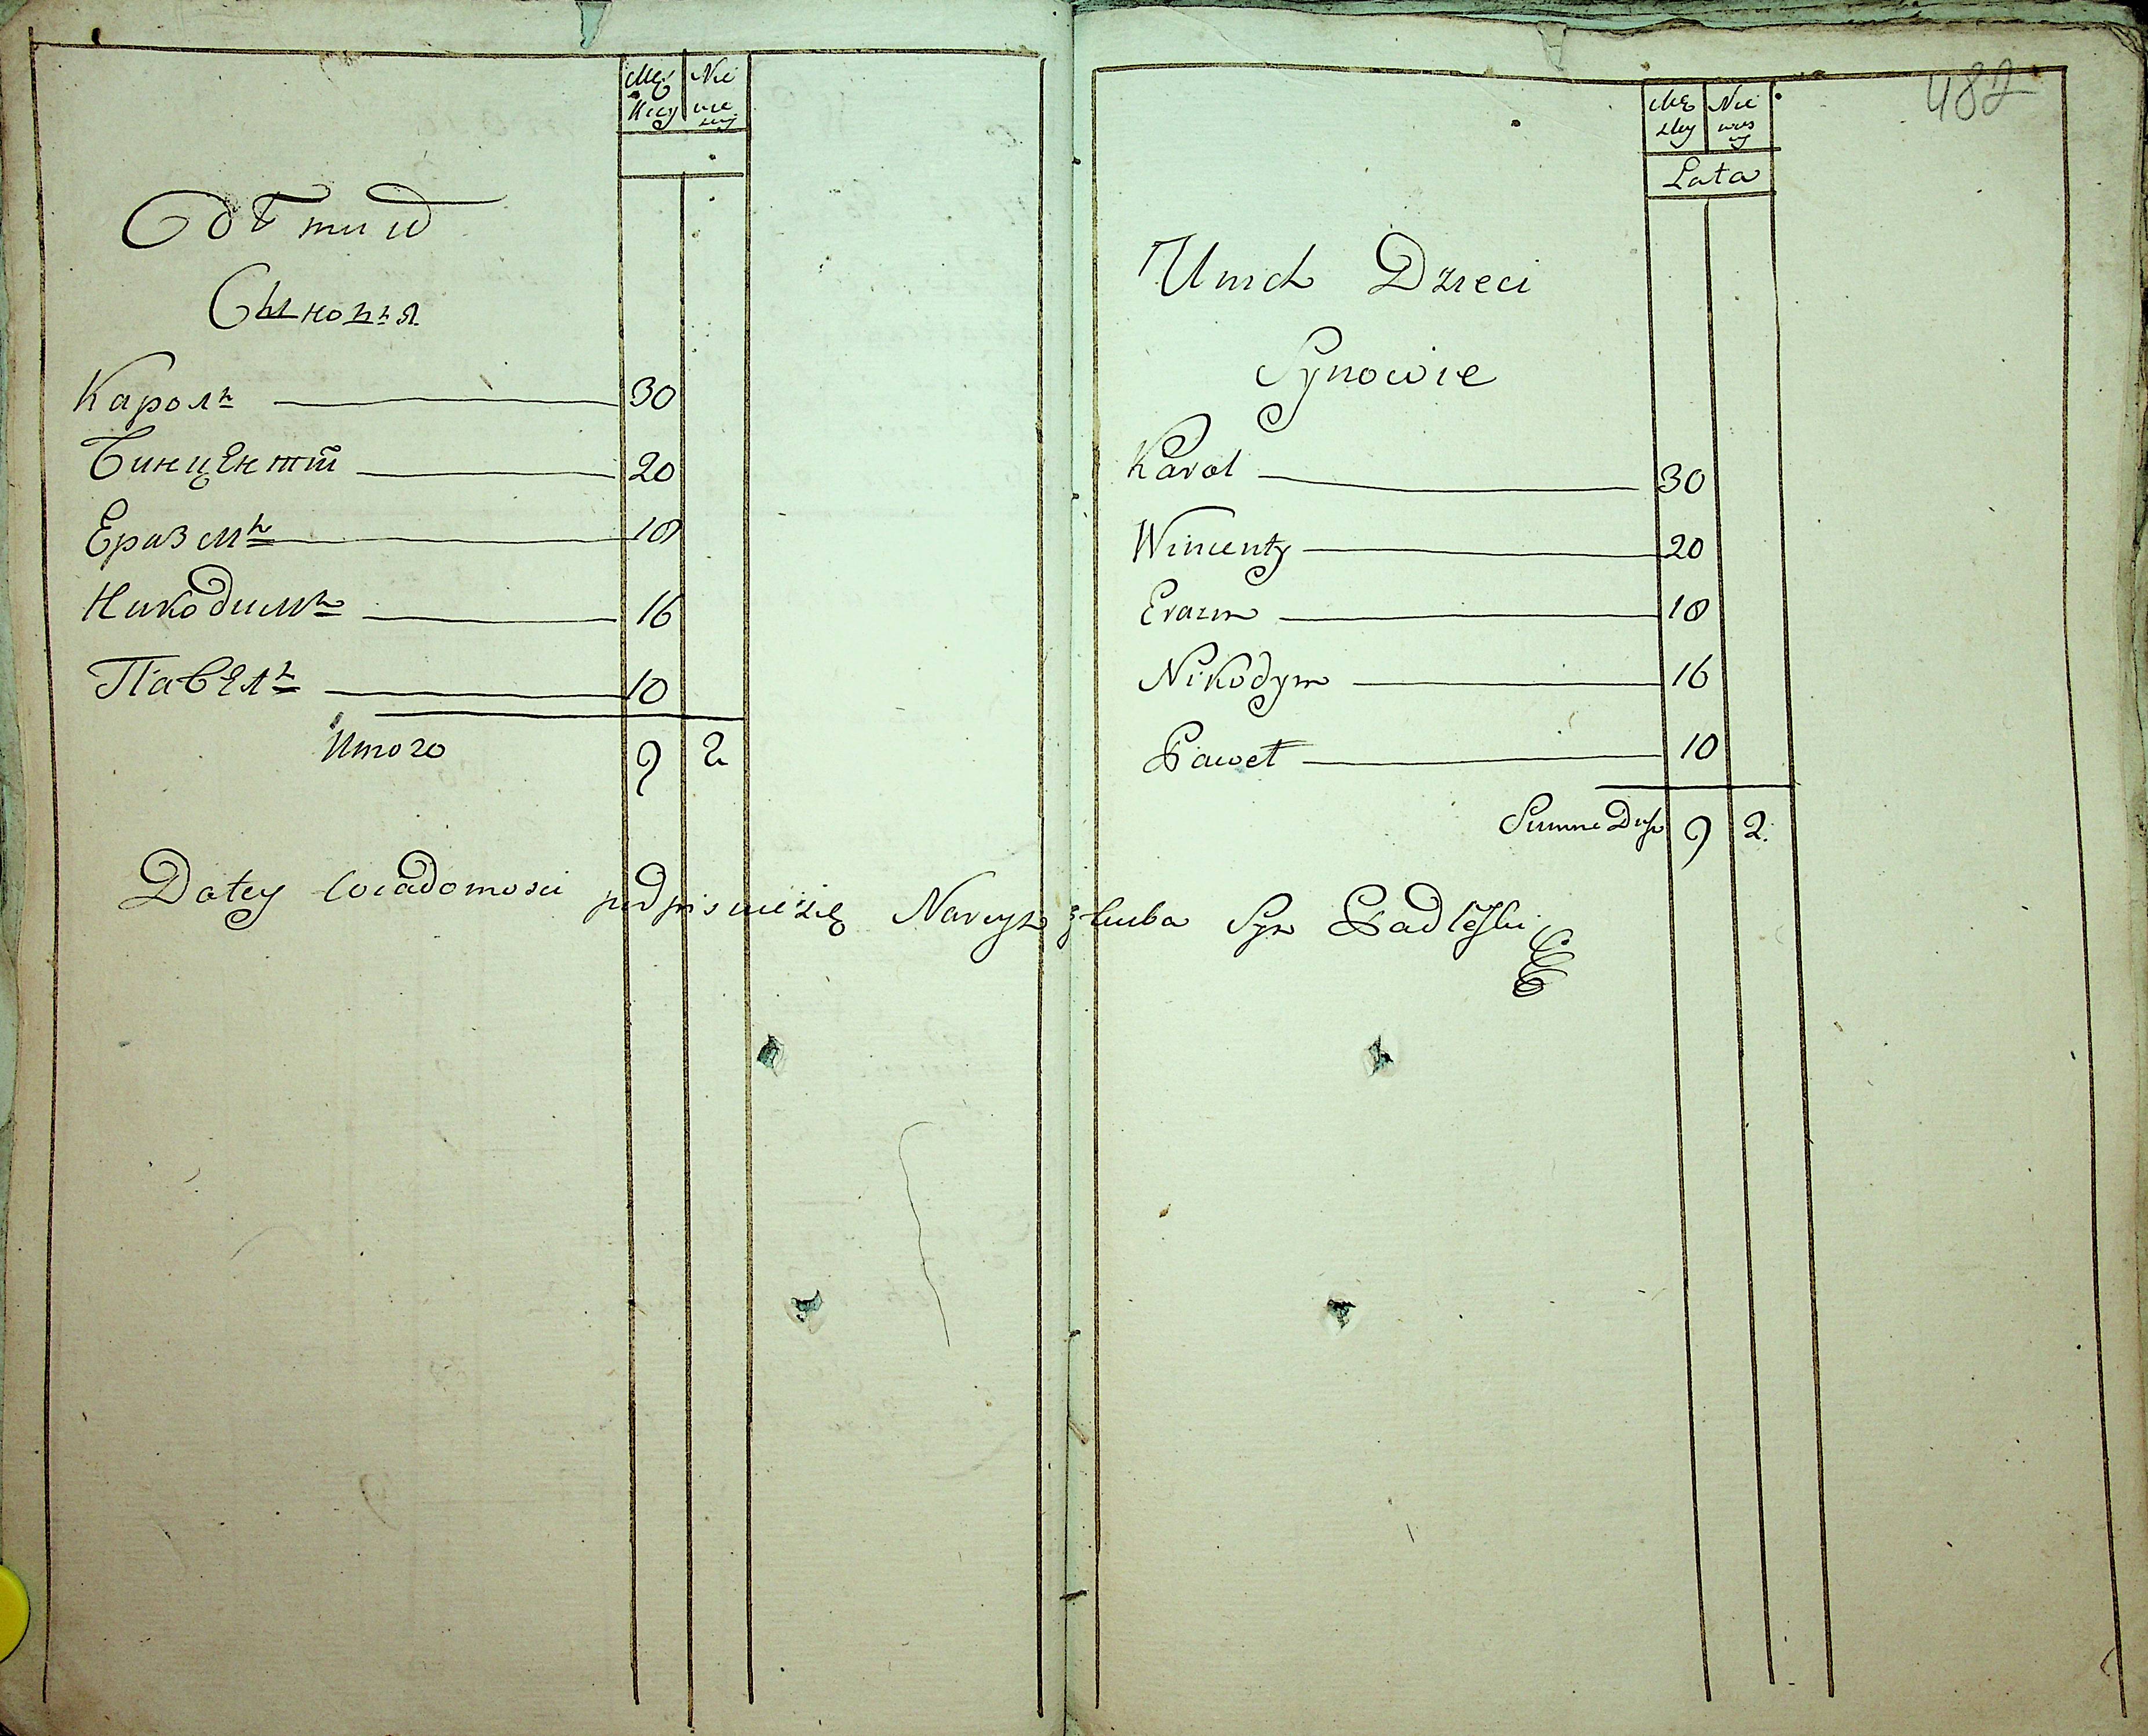 Mę Nie
skey wie
sciej
Сыновья
Кароль 30
Винцентѣ 20
Еразмъ 18
Никодимъ 16
Павелъ 10
Итого 9 2
Do tey wiadomosci podpisuie się Narcyz Syn Padleski
482
Mę Nie
skey wies
Lata
U nich Dzieci
Synowie
Karol 30
Wincenty 20
Erazm 18
Nikodym 16
Paweł 10
Summa Dusz 9 2.